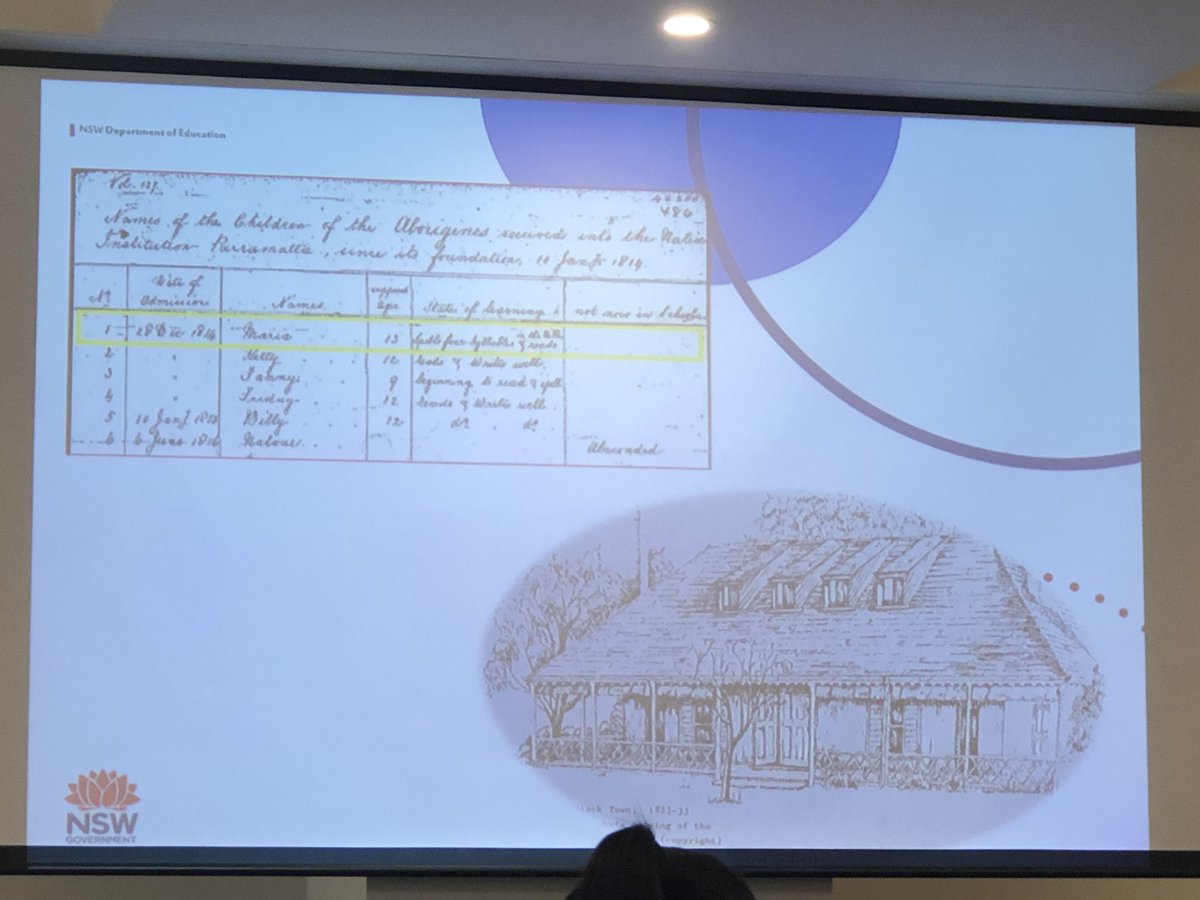 NSW Department of Education
Names of the Children of the Aborigines received into the Native
Institution Parramatta, since its foundation, 10 Jany 1814.
No Date of Admission Names Age State of learning not now in School
1 28 Dec 1814 Maria 13 four Syllables & reads
2 " Kitty 12 Reads & Writes well
3 " Fanny 9 beginning to read & spell
4 " Friday 12 Reads & Writes well
5 10 Jany Billy 12 do do
6 6 June 1816 Absconded
NSW
GOVERNMENT
Town,
of the
(copyright)